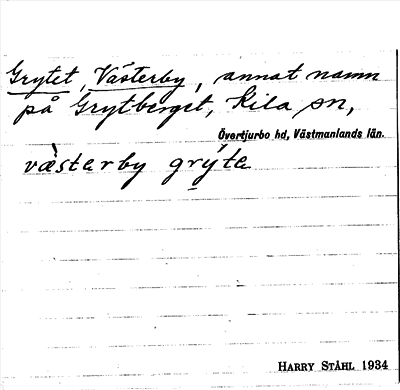 Grytet, Västerby, annat namn
på Grytberget, Kila sn,
Övertjurbo hd, Västmanlands län.
væ̀sterby grý̱te
HARRY STÅHL 1934